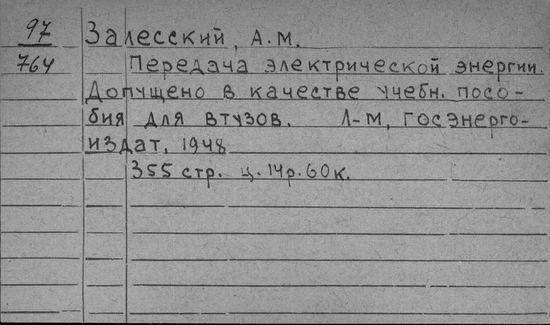 97 Залесский, А.М.
764 Передача электрической энергии.
Допущено в качестве учебн. посо-
бия для втузов. Л-М, Госэнерго-
издат, 1948
355 стр. ц. 14р. 60к.